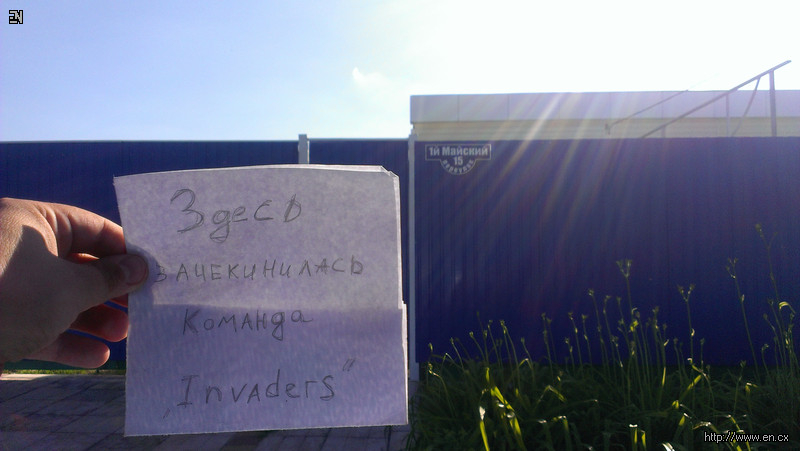 EN
1й Майский
15
переулок
Здесь
зачекинилась
команда
„Invaders"
http://www.en.cx